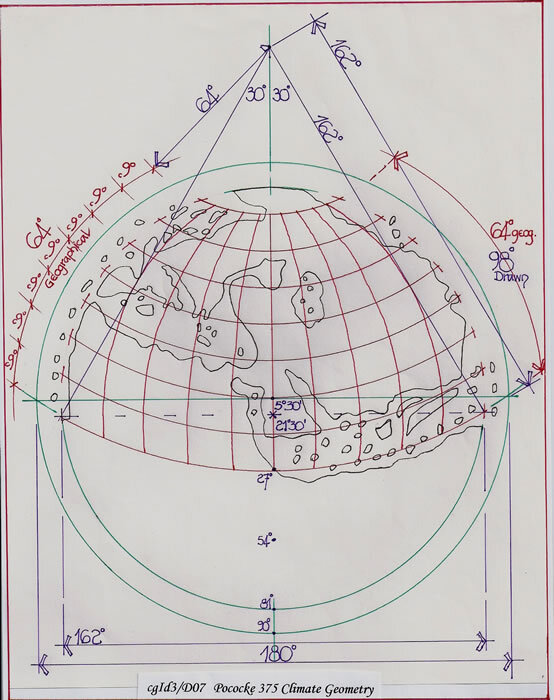 162°
64°
30° 30°
162°
9°
9°
9°
9°
9°
9°
64°
Geographical
64° geog.
98°
Drawn
5°30'
21°30'
27°
54°
81°
90°
162°
180°
cgId3/D07 Pococke 375 Climate Geometry